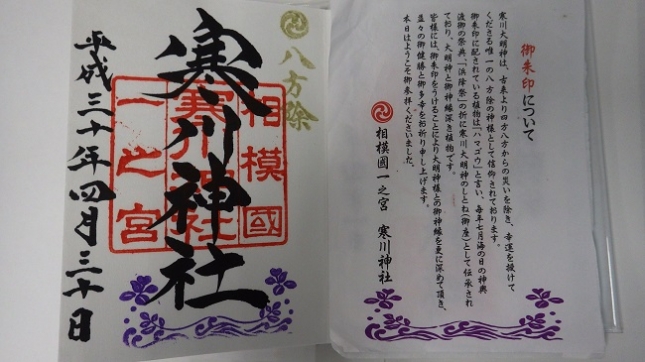 八方除
寒川神社
相模國
寒川神社
一之宮
平成三十年四月三十日
御朱印について
寒川大明神は、古来より四方八方からの災いを除き、幸運を授けて
くださる唯一の八方除の神様として信仰されております。
御朱印に配されている植物は「ハマゴウ」と言い、毎年七月海の日の神輿
渡御の祭典「浜降祭」の折に寒川大明神のしとね(御座)として伝承され
ており、大明神と御神縁深き植物です。
皆様には、御朱印をうけることにより大明神様との御神縁を更に深めて頂き、
益々の御健勝と御多幸をお祈り申し上げます。
本日はようこそ御参拝くださいました。
相模國一之宮 寒川神社